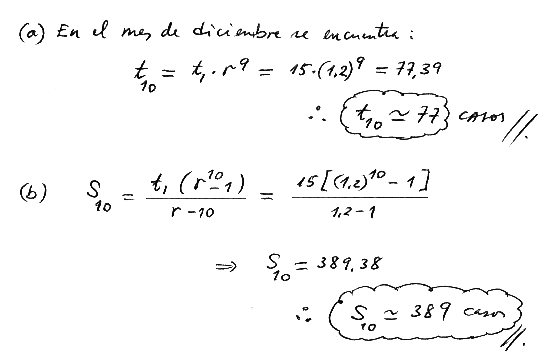 (a) En el mes de diciembre se encuentra :
t₁₀ = t₁ · r⁹ = 15·(1,2)⁹ = 77,39
∴ t₁₀ ≃ 77 casos //.
(b) S₁₀ = t₁ (r¹⁰-1) / r-10 = 15[(1.2)¹⁰ - 1] / 1,2-1
⇒ S₁₀ = 389,38
∴ S₁₀ ≃ 389 casos //.